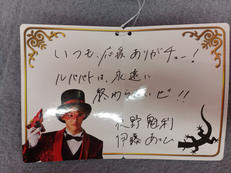 いつも、応援ありがチュー!
ルパパトは、永遠に
終わらないゼ!!
夜野魁利
伊藤あさひ